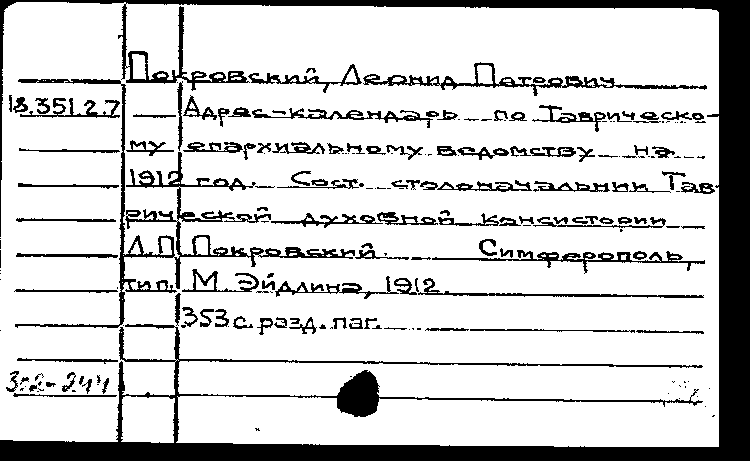 Покровский, Леонид Петрович
18.351.2.7 Адрес-календарь по Таврическо-
му епархиальному ведомству на
1912 год. Сост. столоначальник Тав-
рической духовной консистории
Л.П. Покровский. Симферополь,
тип. М. Эйдлина, 1912.
353 с. разд. паг.